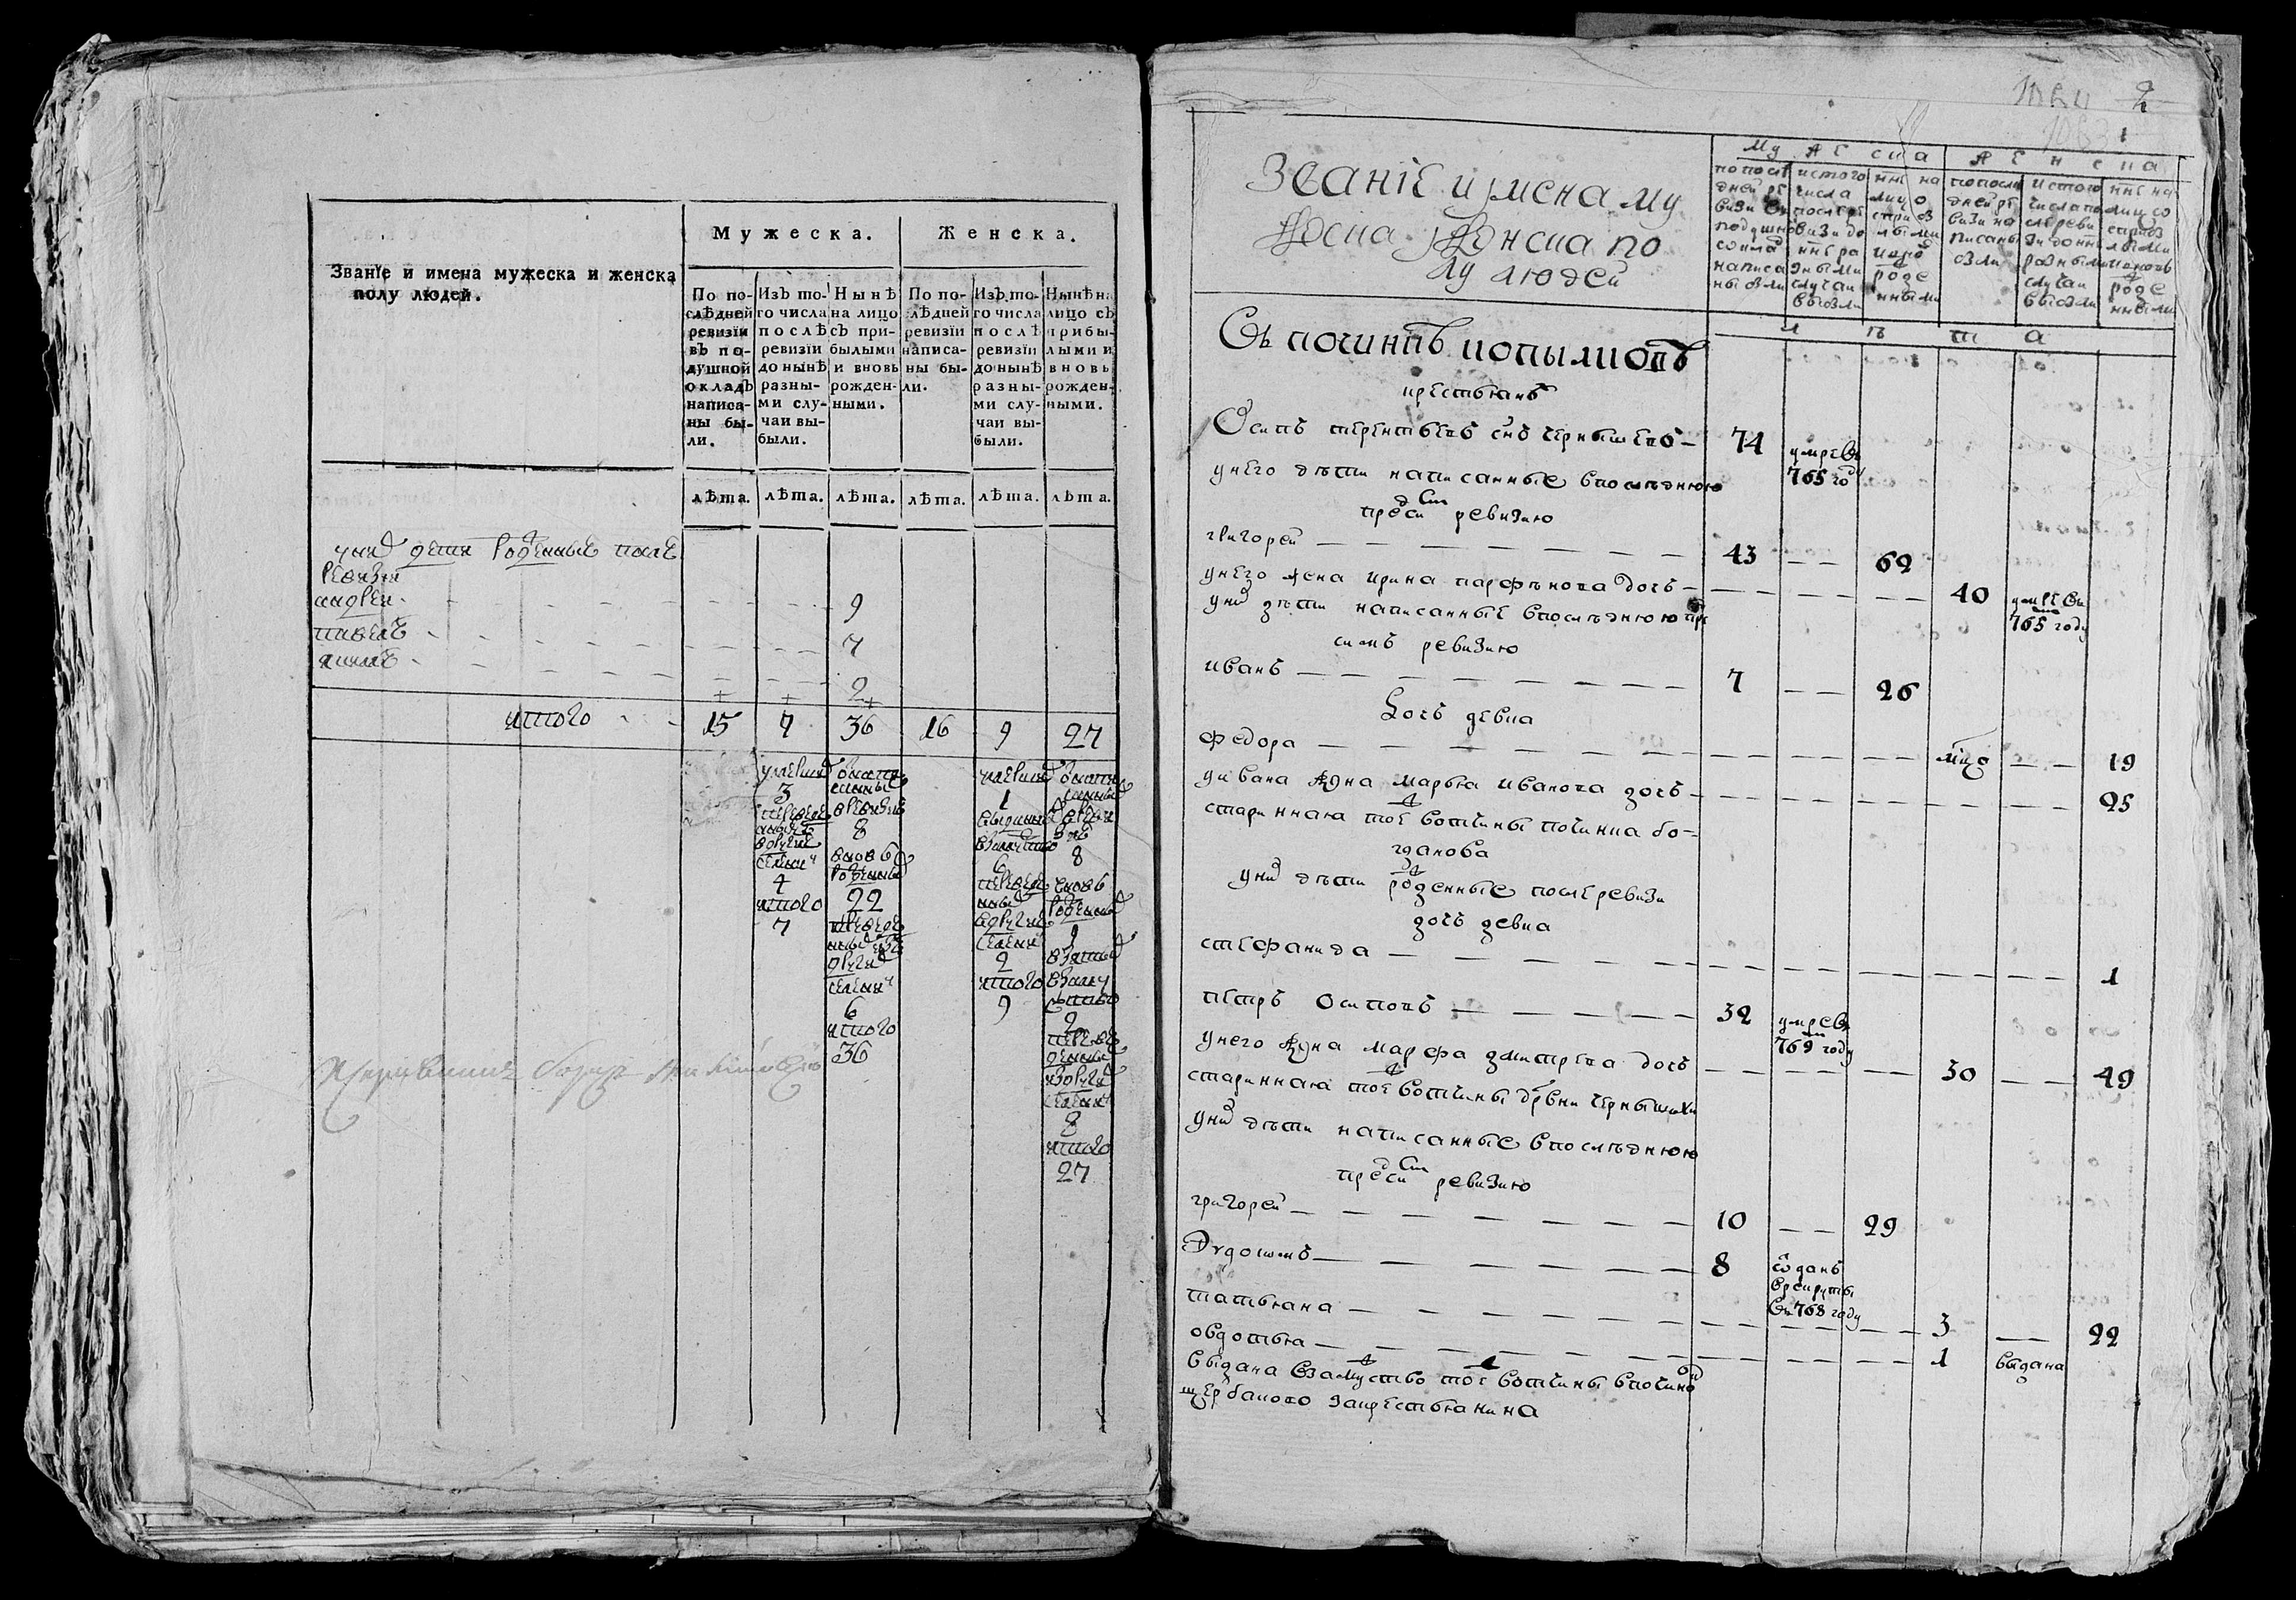 Званїе и имена мужеска и женска
полу людей.
Мужеска.
Женска.
По по-
слѣдней
ревизїи
въ по-
душной
окладъ
написа-
ны бы-
ли.
Изъ то-
го числа
послѣ
ревизїи
до нынѣ
разны-
ми слу-
чаи вы-
были.
Нынѣ
на лицо
съ при-
былыми
и вновь
рожден-
ными.
По по-
слѣдней
ревизїи
написа-
ны бы-
ли.
Изъ то-
го числа
послѣ
ревизїи
до нынѣ
разны-
ми слу-
чаи вы-
были.
Нынѣ на
лицо съ
прибы-
лыми и
вновь
рожден-
ными.
лѣта. лѣта. лѣта. лѣта. лѣта. лѣта.
у них дети рожденныя после
ревизи
андреи 9
павелъ 7
якимъ 2
итого 15 7 36 16 9 27
умерших
3
переведе
ных въ
другие
селени
4
итого
7
написа
ных
в ревизие
8
вновь
рожденных
22
переведе
ных из
других
селени
6
итого
36
умерших
1
6
переведе
ных
в другие
селени
2
итого
9
8
вновь
рожденых
9
взятых
взаму
жство
2
переве
деных
из других
селени
8
итого
27
2
1
Званїе и имена му
жеска и женска по
лу людей
мужеска
женска
по после
дней ре
визи въ
подушно
оклад
написа
ны были
ис того
числа
после ре
визи до
нне ра
зными
случаи
выбыли
нне на
лицо
с приб
лыми
и
рожде
нными
по после
дней ре
визи на
писаны
были
ис того
числа по
сле реви
зи до нне
разными
случаи
выбыли
нне на
лицо со
прибы
лыми
и вновь
рожде
нными
лѣта
Въ починкѣ копылковѣ
крестьянъ
Осипъ терентьевъ снъ чернышевъ 74 умре въ
765 году
у него дѣти написанные в последнюю
пред сим ревизию
григорей 43 62
у него жена ирина парфѣнова дочь 40 умре въ
765 году
у них дѣти написанные в последнюю пре
симъ ревизию
иванъ 7 26
Дочь девка
федора 19
у ивана жена марья иванова дочь 25
стариннаю тое вотчины починка бо-
гданова
у них дѣти рожденные после ревизи
дочь девка
стефанида 1
петръ осиповъ 32 умре въ
769 году
у него жена марфа дмитрева дочь 30 49
стариннаю тое вотчины дрвни чернышихи
у них дѣти написанные в последнюю
пред сим ревизию
григорей 10 29
Фудошъ 8 отданъ
в рекруты
въ 768 году
татьяна 3 22
овдотья 1 выдана
выдана в замужство тое вотчины в починок
щербаково за крестьянина